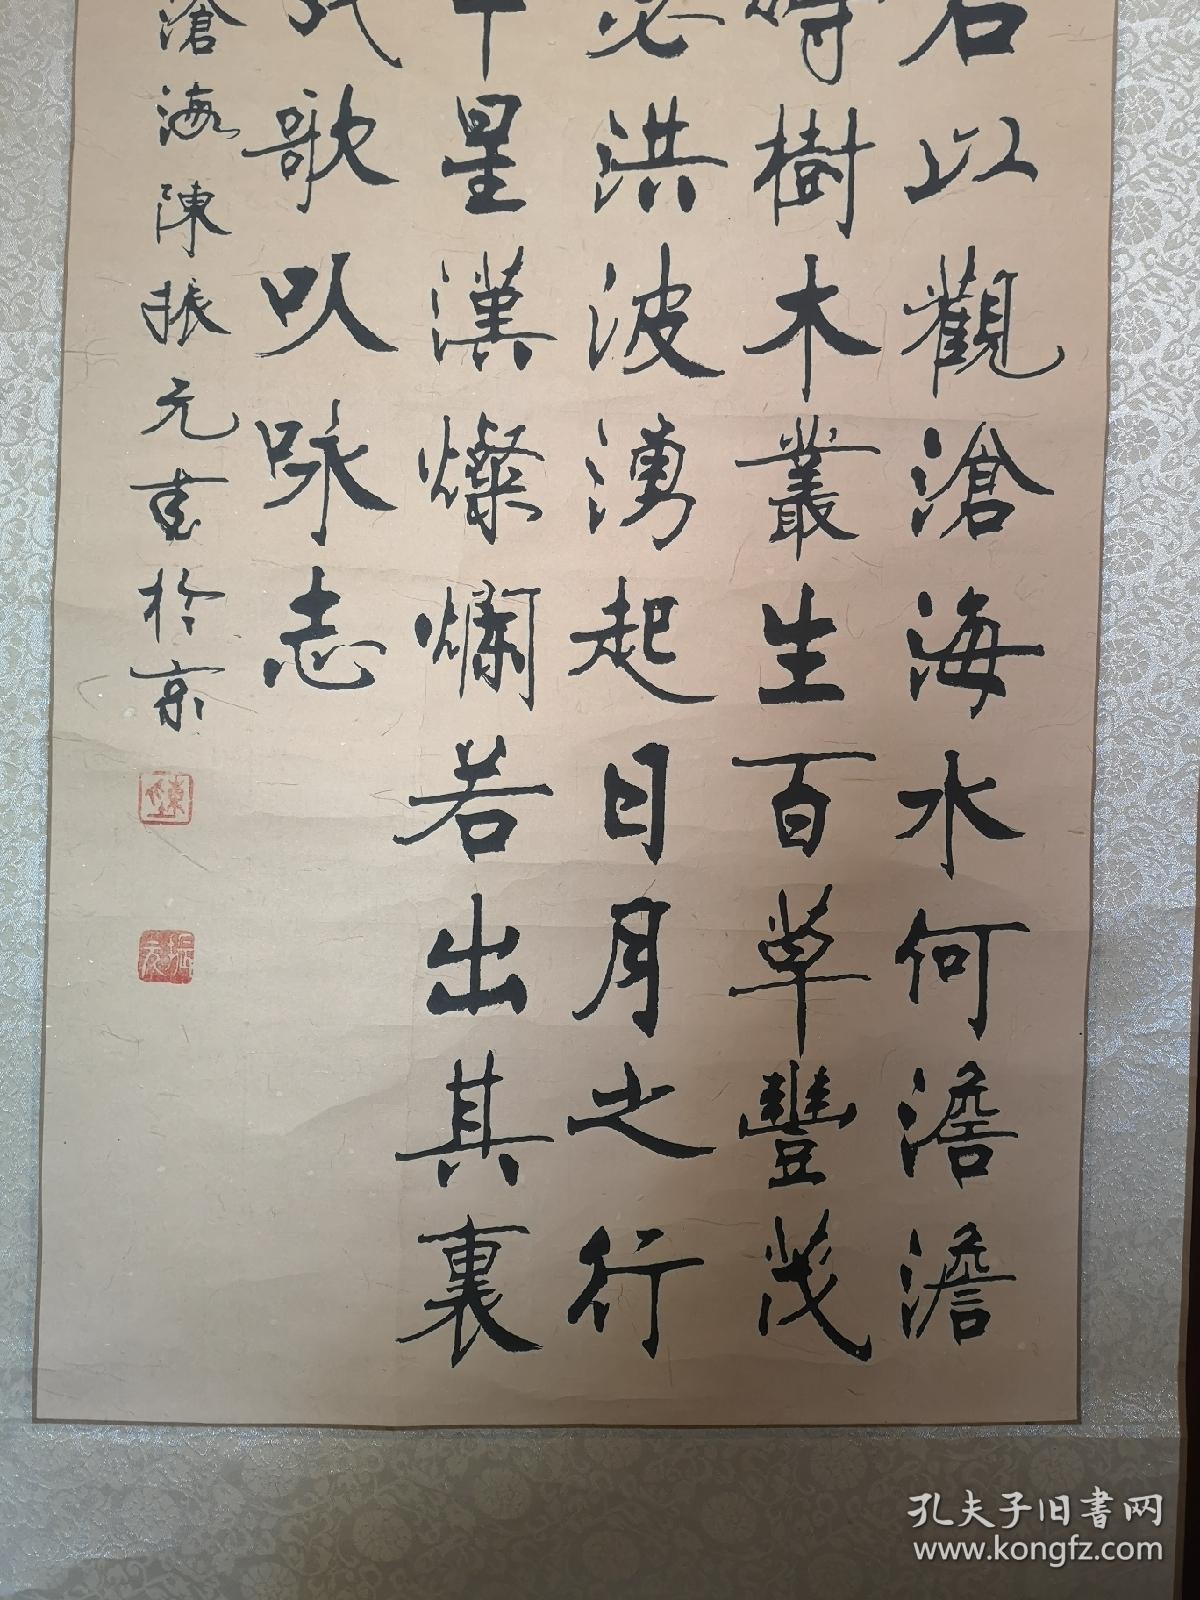 石以觀滄海水何澹澹
峙樹木叢生百草豐茂
洪波湧起日月之行
星漢燦爛若出其裏
歌以咏志
滄海陳振元書於京
孔夫子旧書网
www.kongfz.com